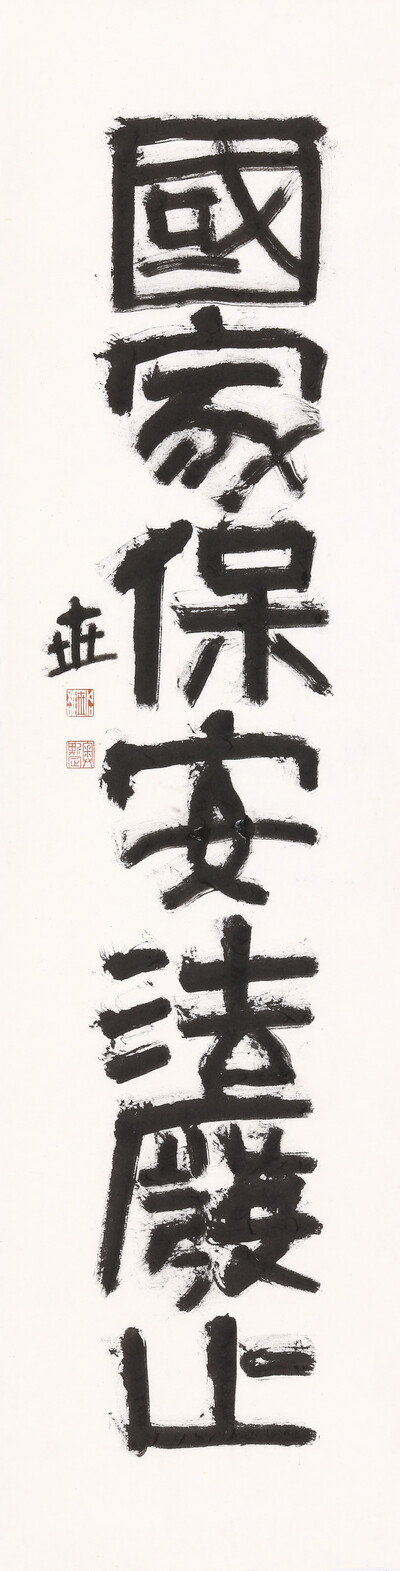 國家保安法廢止